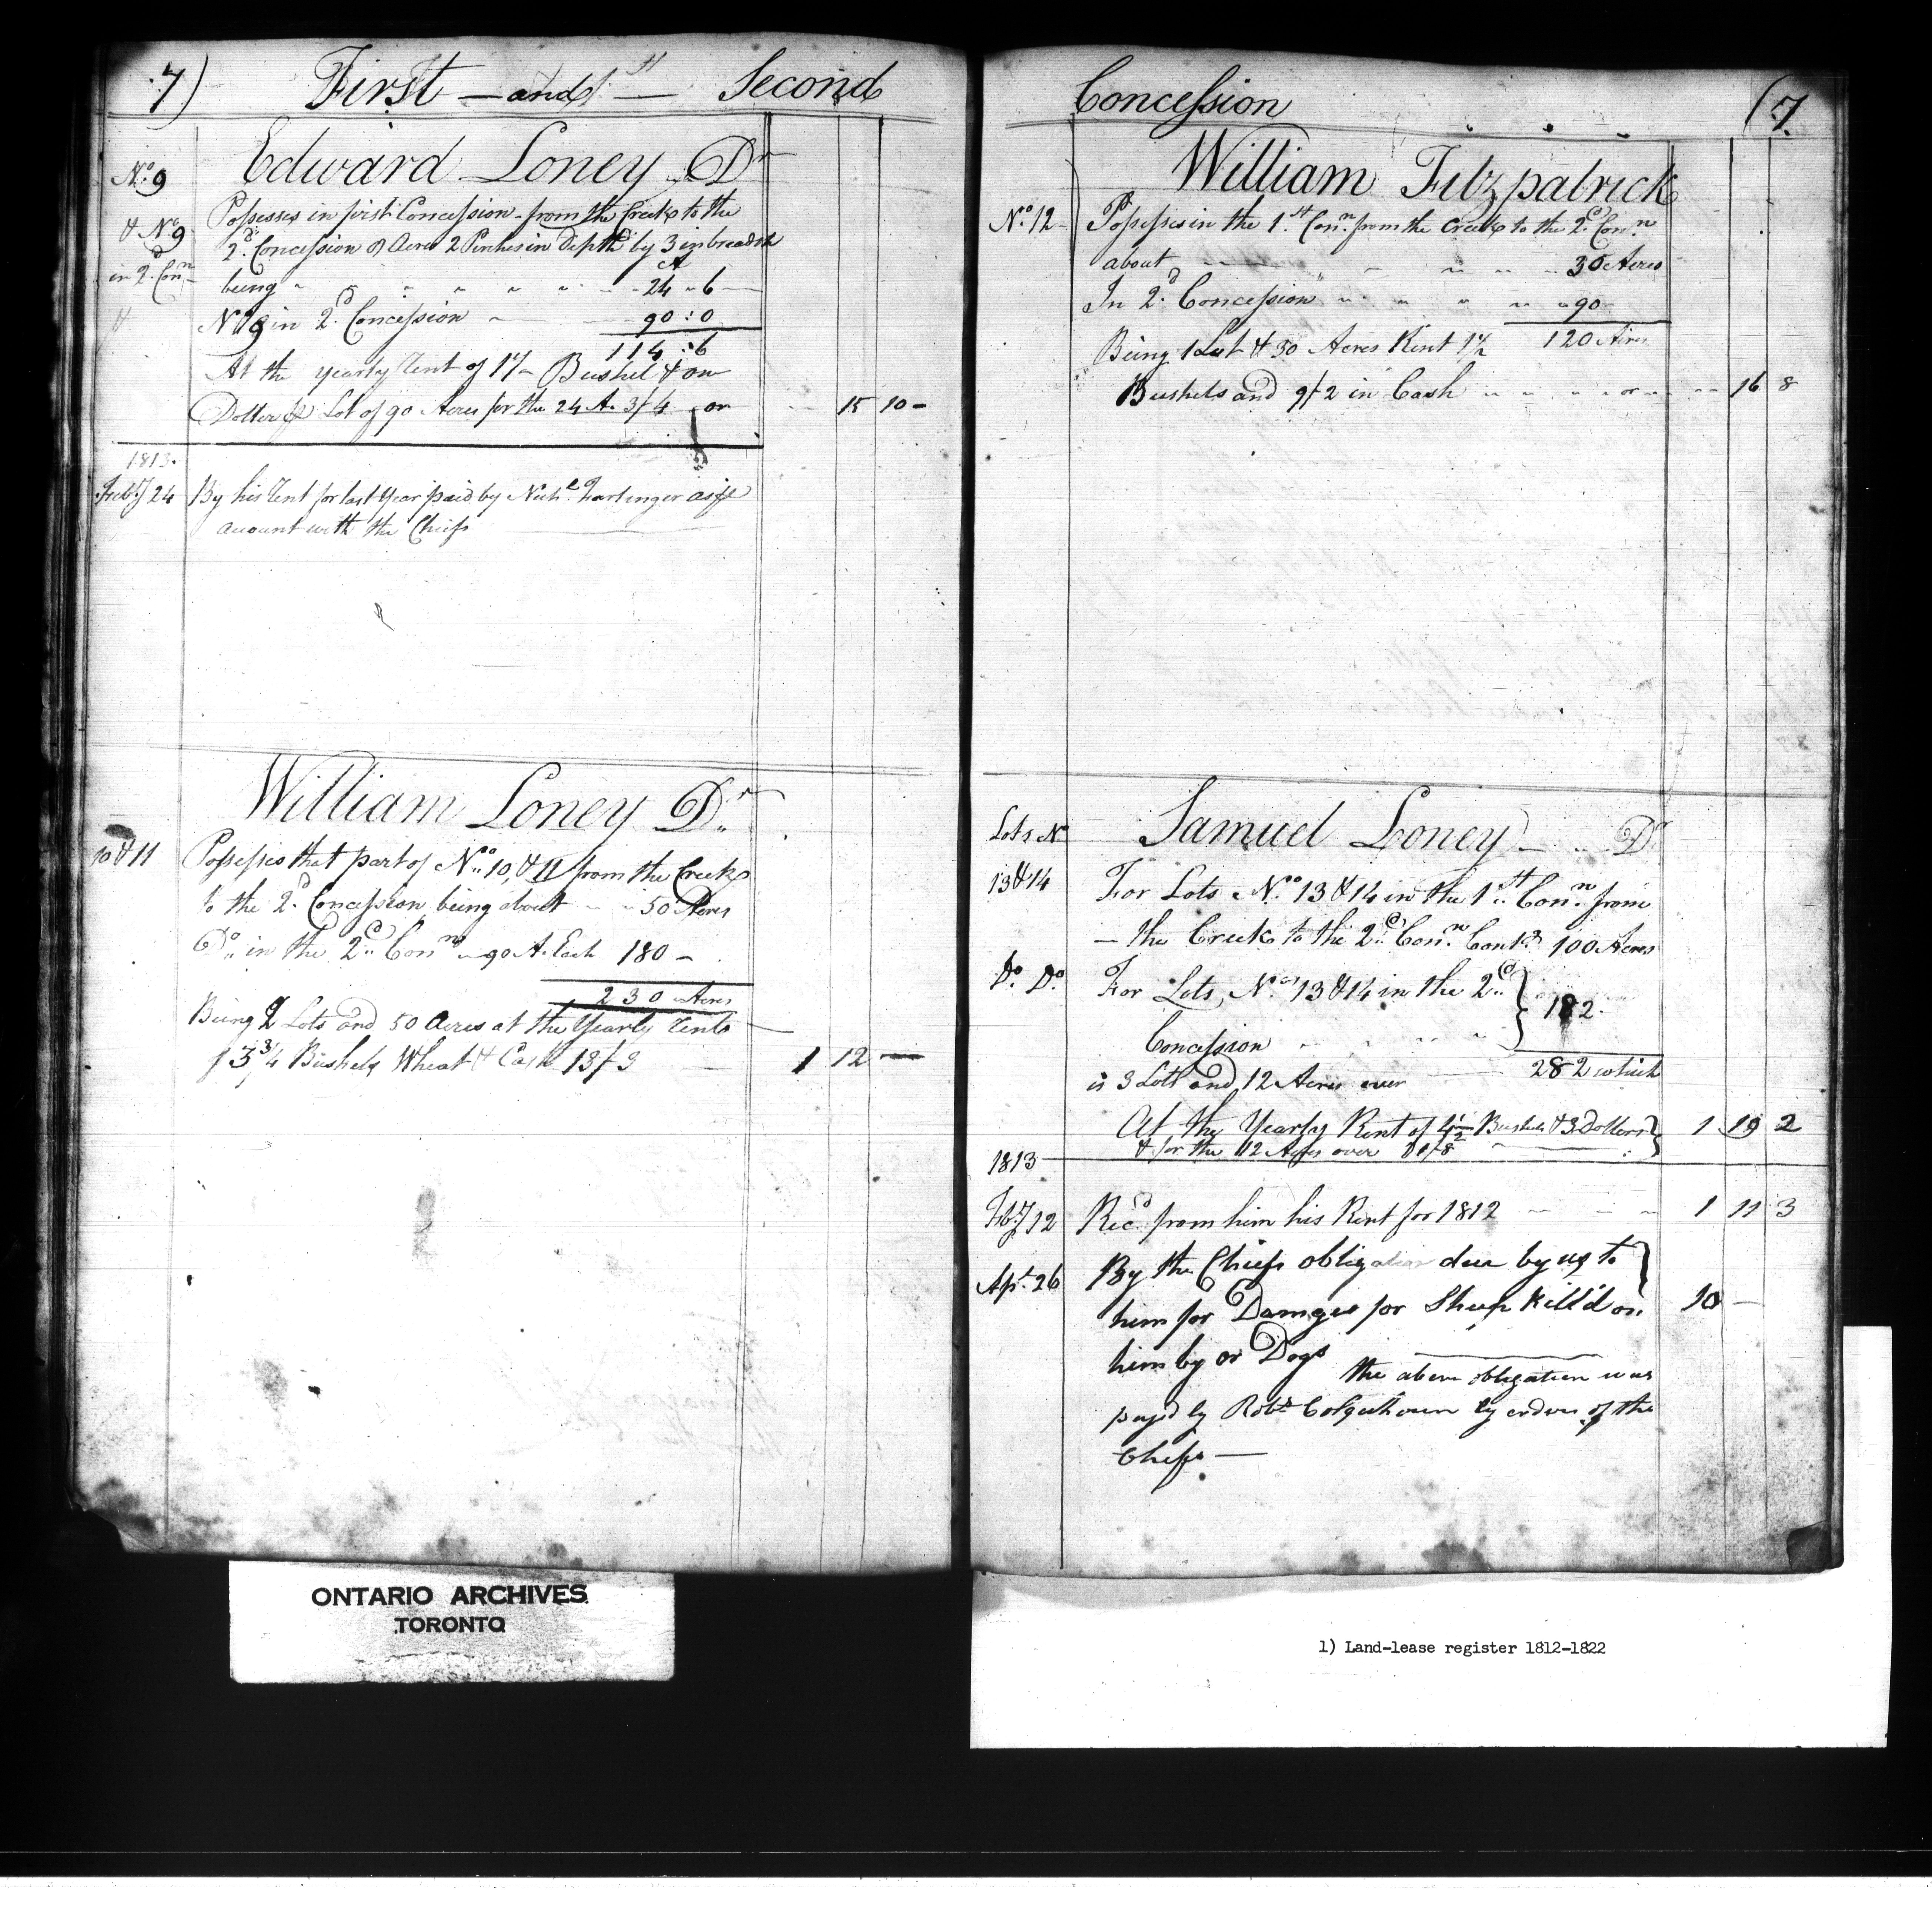 7) First — and — Second
Edward Loney Dr
No. 9
& No. 9
in 2d. Conn
Possesses in first Concession from the Creek to the
2d. Concession 8 Acres 2 Perches in Depth by 3 in breadth
being 24 " 6
No. 9 in 2d. Concession 90 : 0
114 : 6
At the yearly Rent of 1½ Bushel & one
Dollar pr Lot of 90 Acres for the 24 A. 3/4 or 15 10 -
1813.
Feby 24 By his Rent for last Year paid by Nichl. as pr
account with the Chiefs
William Loney Dr.
10 & 11 Possesses that part of No. 10, & 11 from the Creek
to the 2d. Concession being about 50 Acres
Do. in the 2d. Conn 90 A. Each 180 -
230 Acres
Being 2 Lots and 50 Acres at the Yearly Rents
of 3¾ Bushels Wheat & Cash 13/3 1 12 —
Concession (7.
William Fitzpatrick
No. 12 Possesses in the 1st. Conn. from the Creek to the 2d. Conn
about 30 Acres
In 2d. Concession 90
Being 1 Lot & 30 Acres Rent 1½ 120 Acres
Bushels and 9/2 in Cash or 16 8
Samuel Loney Dr
Lots No
13 & 14 For Lots No. 13 & 14 in the 1st. Conn. from
— the Creek to the 2d. Conn. Contg 100 Acres
Do. Do. For Lots, Nos. 13 & 14 in the 2d. } 182.
Concession
282 which
is 3 Lots and 12 Acres over
At the Yearly Rent of 4½ Bushels & 3 Dollars } 1 19 2
& for the 12 Acres over 1/8
1813
Feby 12 Recd. from him his Rent for 1812 1 11 3
Apl. 26 By the Chiefs obligation due by us to }
him for Damges for Sheep Kill'd on 10 —
him by or Dogs
the above obligation was
payd by Robt. Colquhoun by order of the
Chiefs —
ONTARIO ARCHIVES
TORONTO
1) Land-lease register 1812-1822